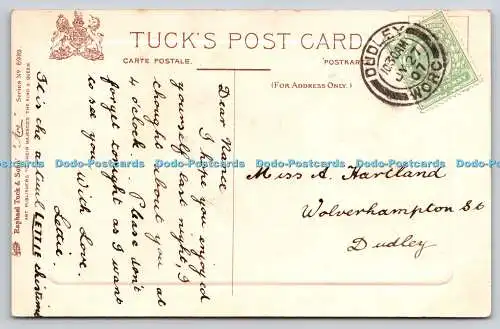 TUCK'S POST CARD
CARTE POSTALE.
POSTKARTE
(FOR ADDRESS ONLY.)
DUDLEY
WORC
07
Raphael Tuck & Sons'
Series No
ART PUBLISHERS TO THEIR MAJESTIES THE KING & QUEEN
Dear Nance
I hope you enjoyed
yourself last night, I
thought about you at
4 o'clock. Please don't
forget tonight as I want
to see you. With Love.
It's the LETTLE
Miss A. Hartland
Wolverhampton St
Dudley
Dodo-Postcards Dodo-Postcards Dodo-Postcards Dodo-Postcards Dodo-Postcards Dodo-Postcards